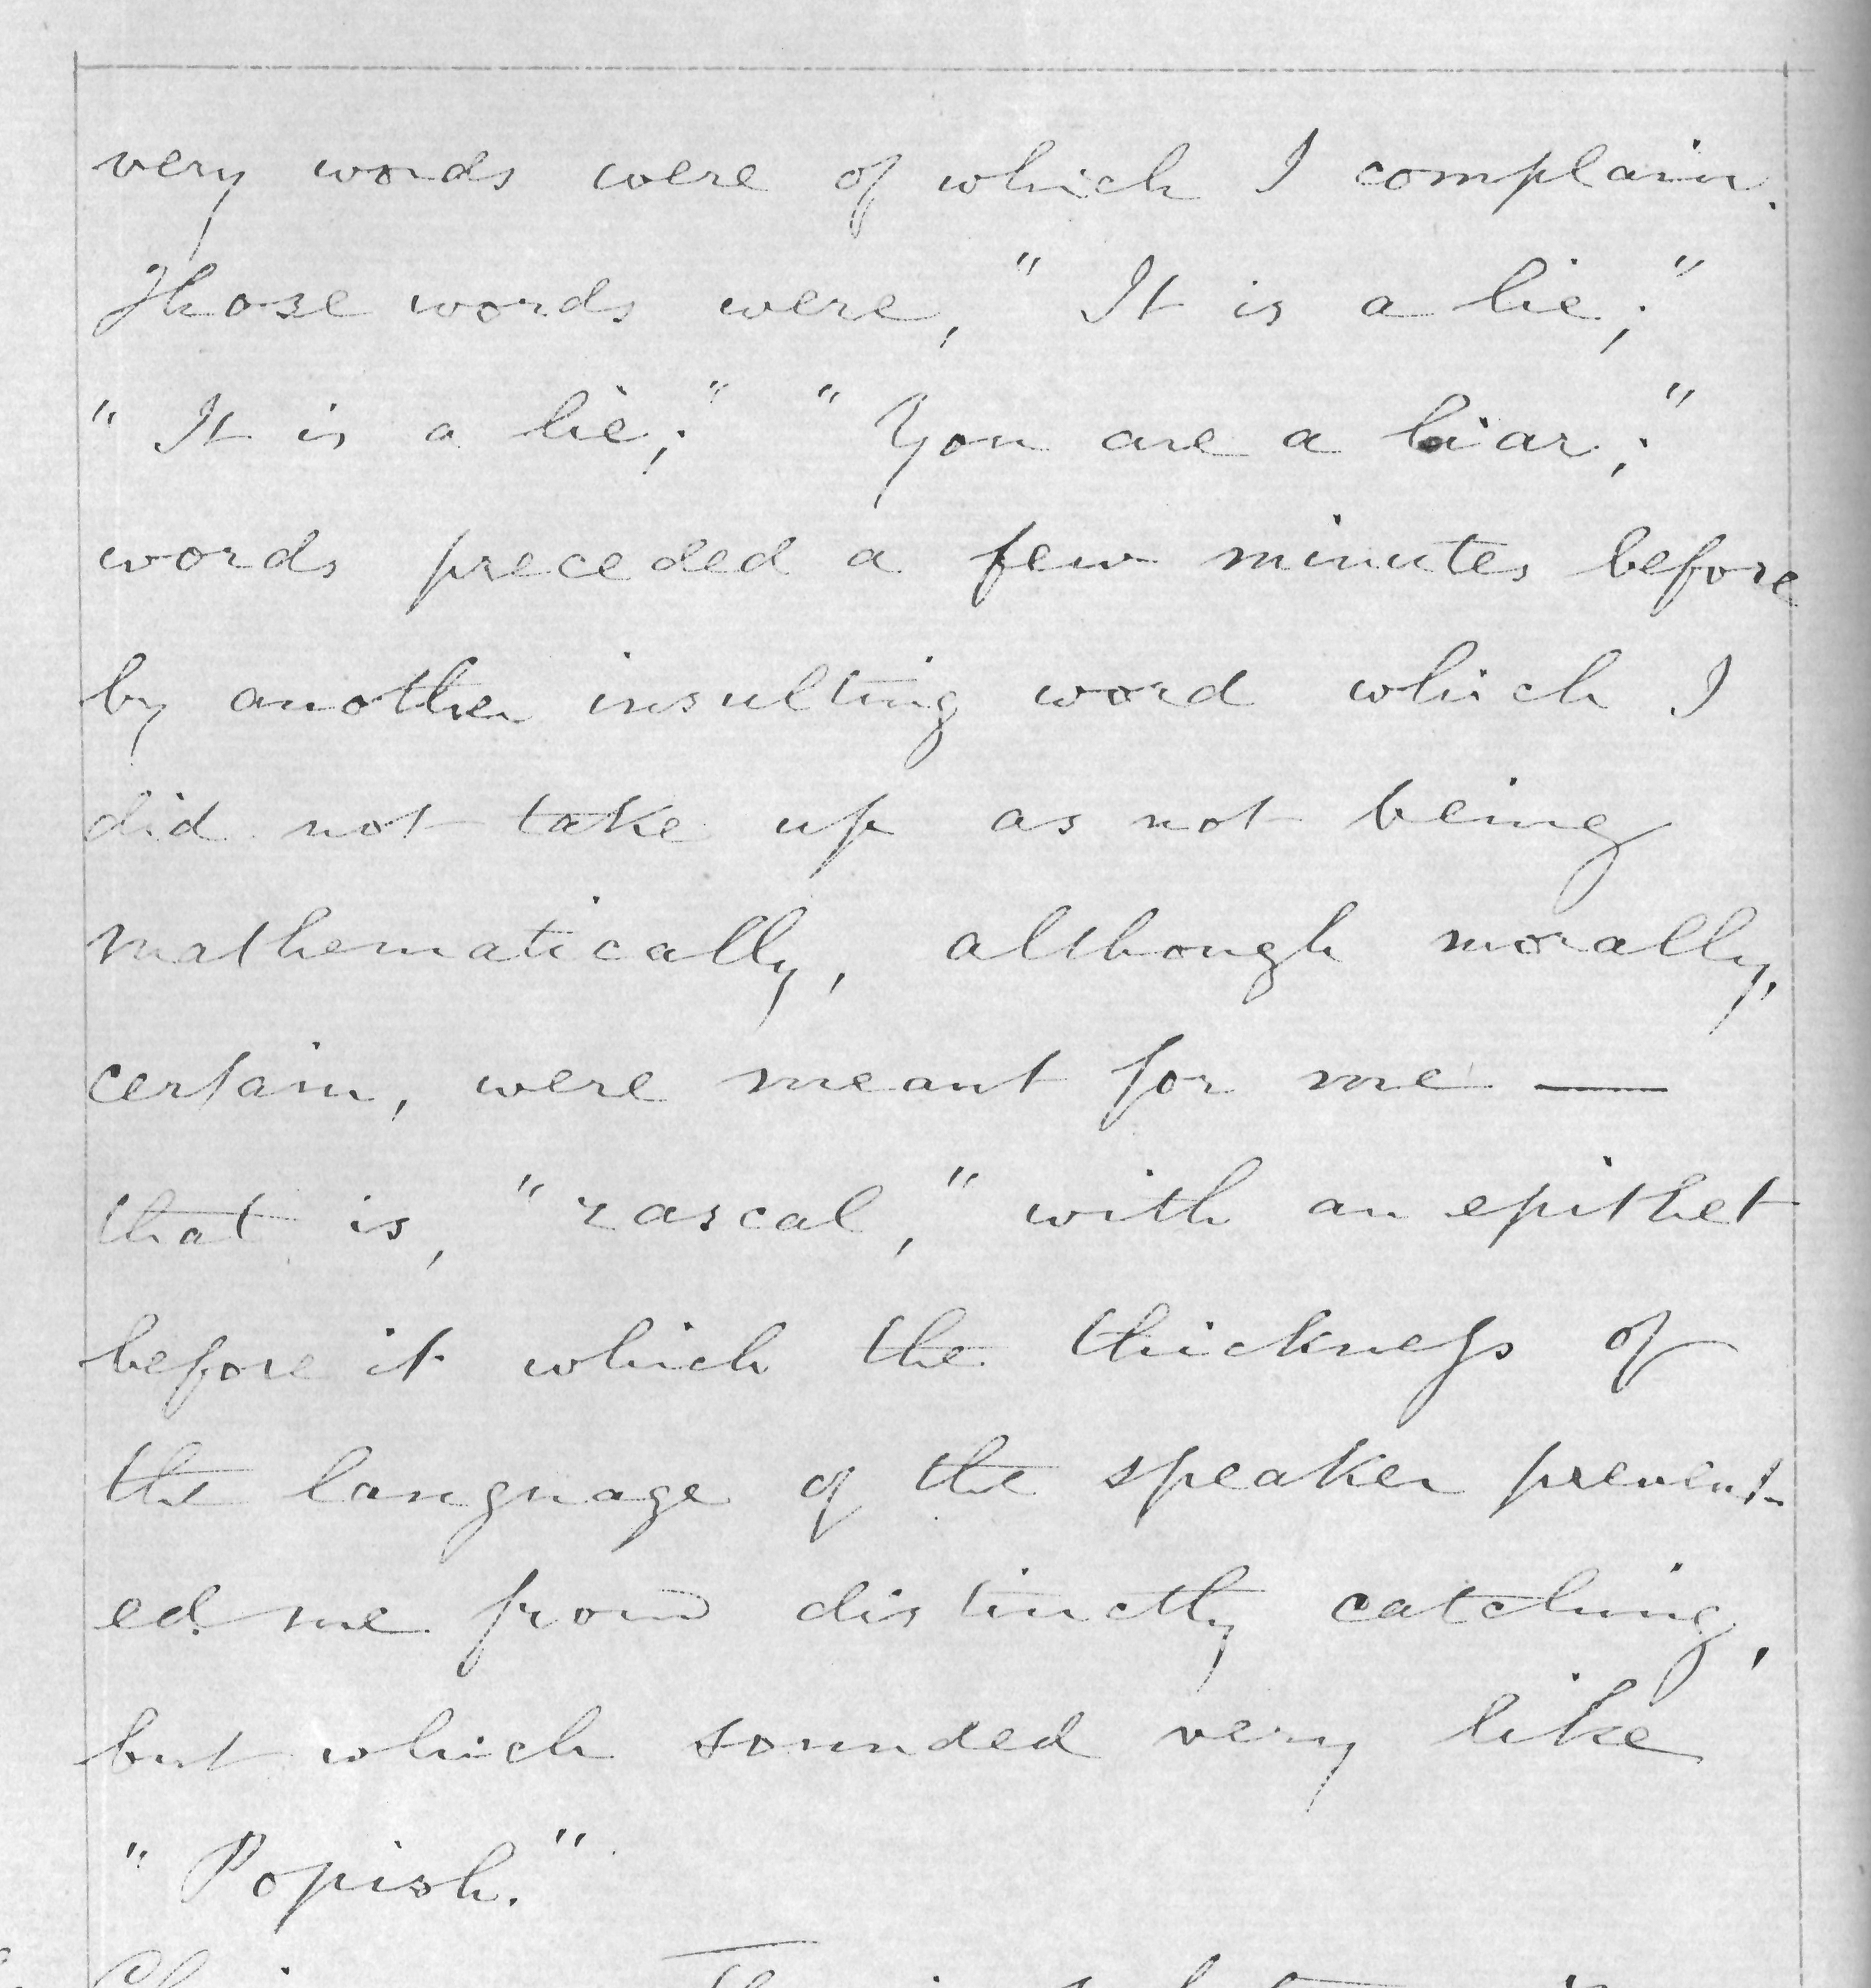 very words were of which I complain.
Those words were, "It is a lie;"
"It is a lie;" "You are a liar;"
words preceded a few minutes before
by another insulting word which I
did not take up as not being
mathematically, although morally,
certain, were meant for me —
that is, "rascal," with an epithet
before it which the thickness of
the language of the speaker prevent-
ed me from distinctly catching,
but which sounded very like
"Popish."